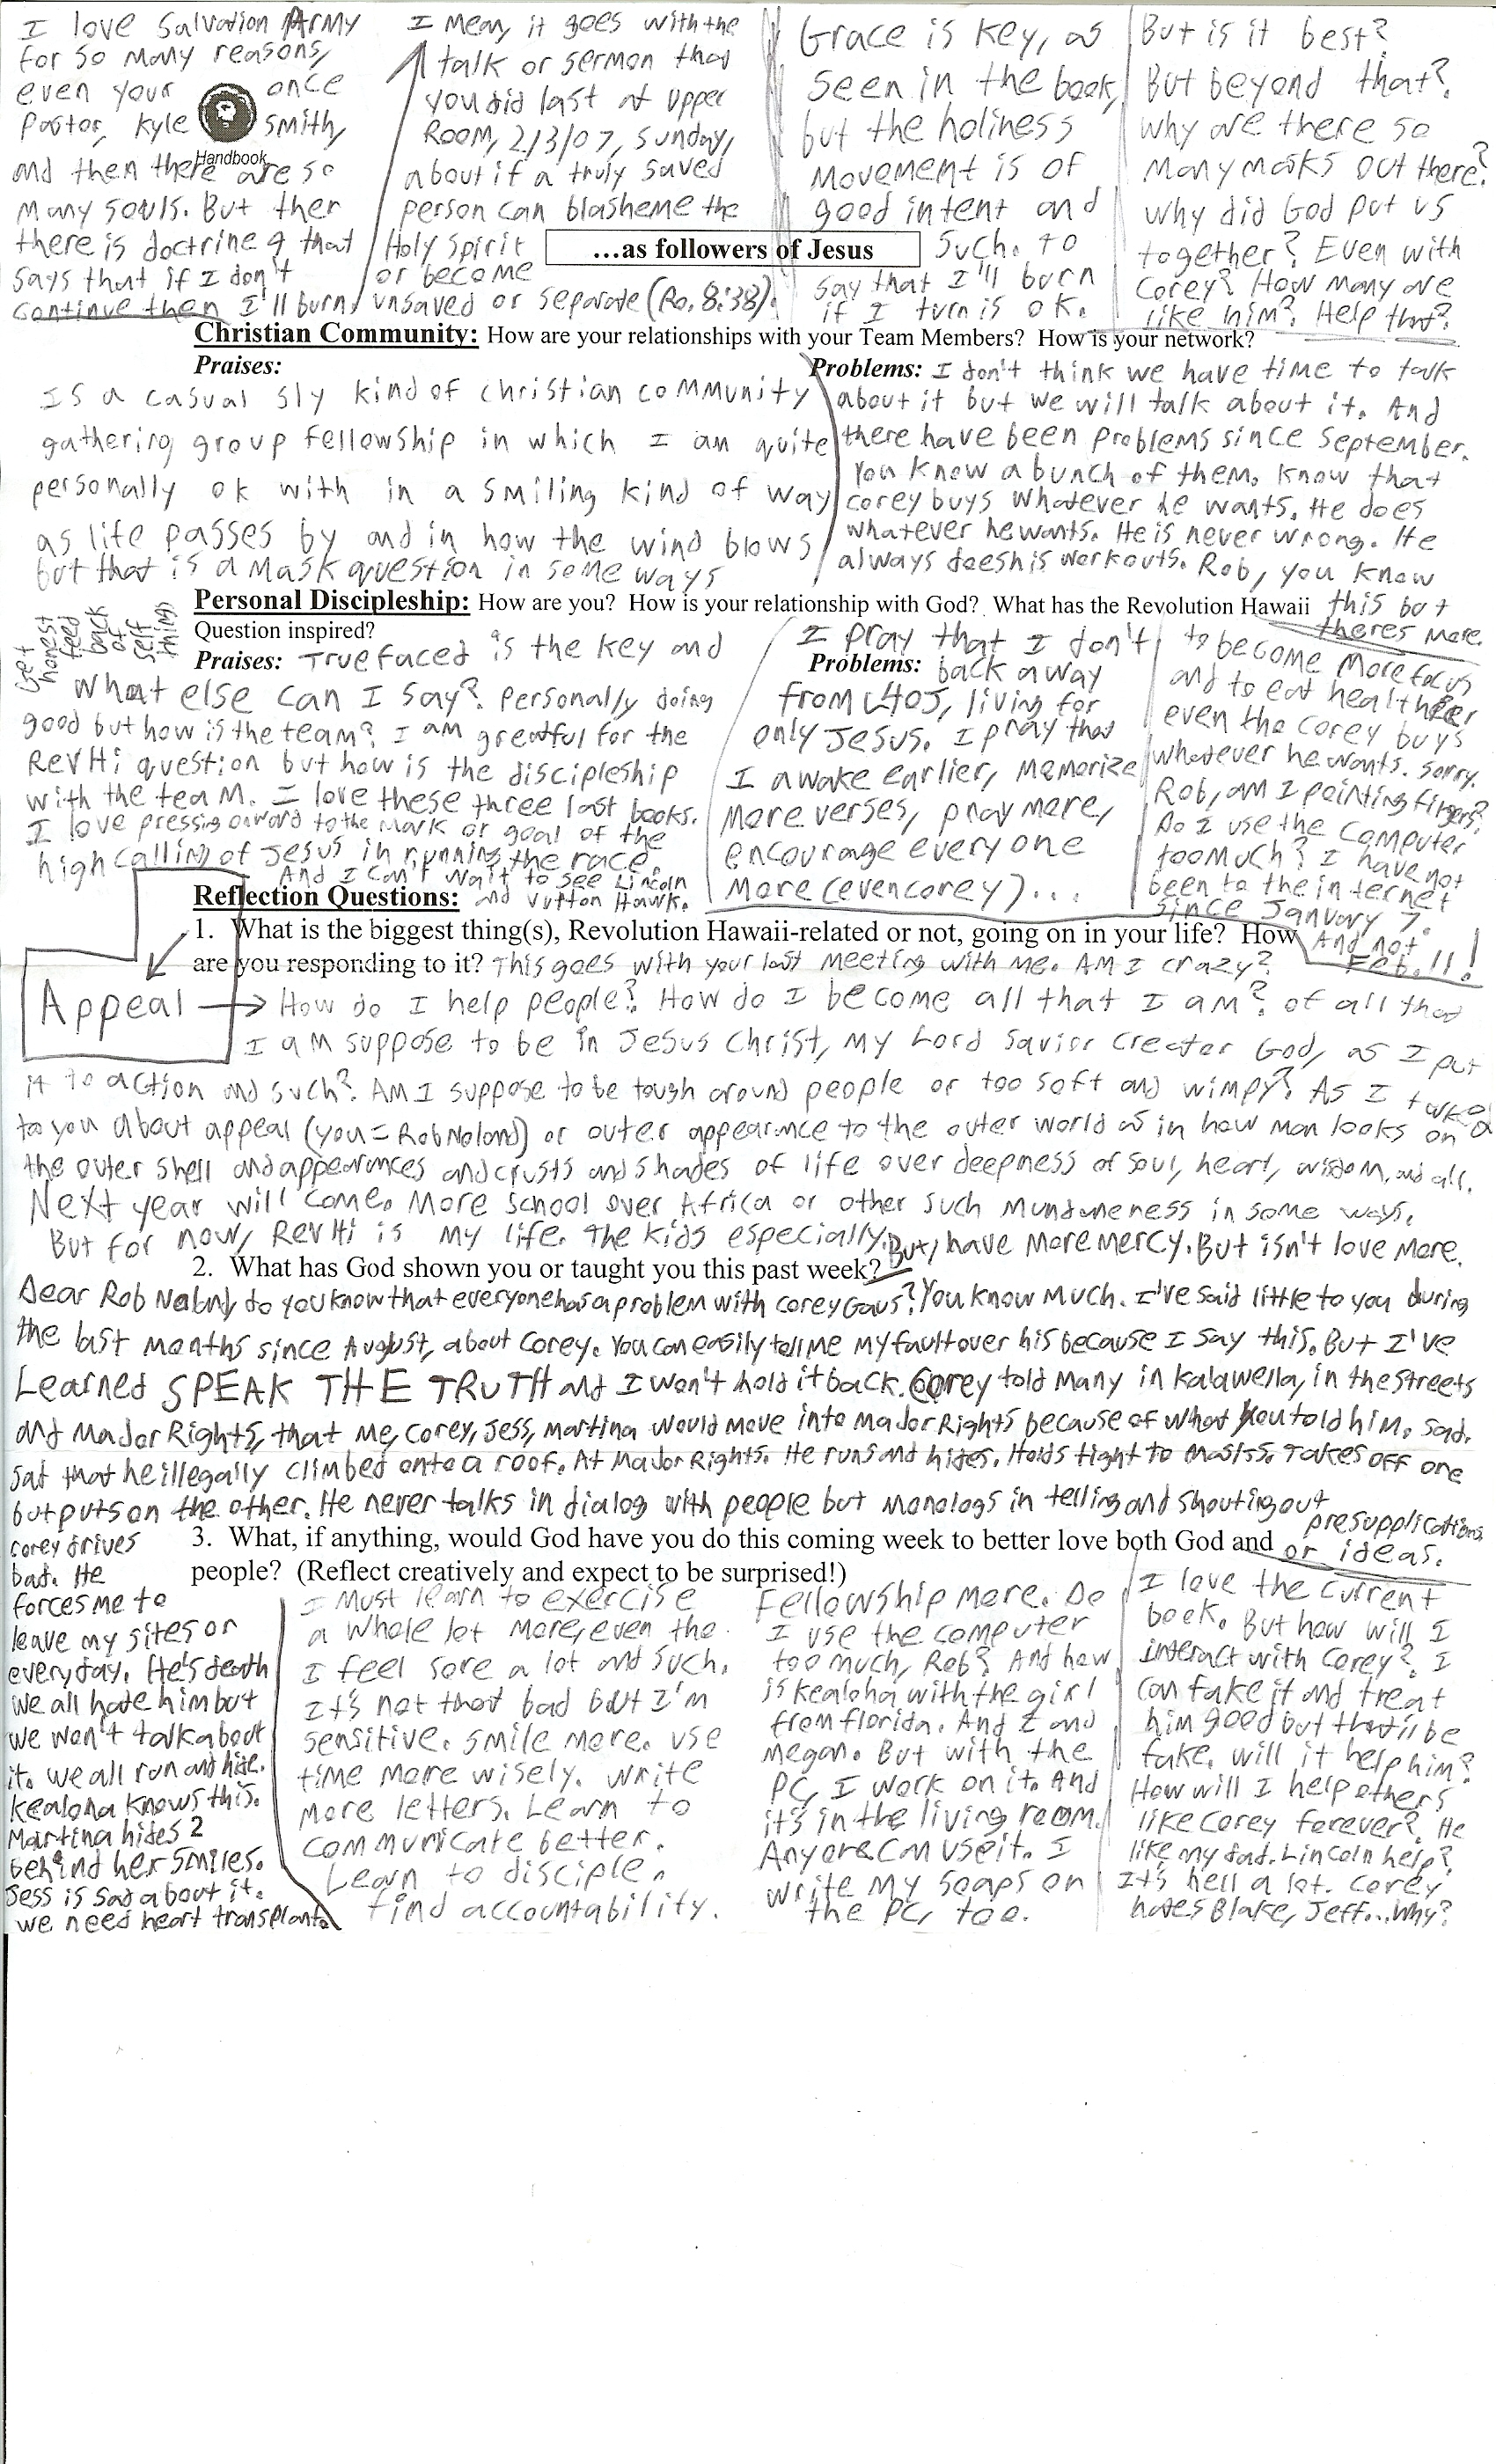 I love Salvation Army
for so many reasons,
even your once
Pastor, Kyle Smith,
Handbook
and then there are so
many souls. But ther
there is doctrine 9 that
says that if I don't
continue then I'll burn
I mean, it goes with the
talk or sermon that
you did last at Upper
Room, 2/3/07, Sunday,
about if a truly saved
person can blasheme the
Holy Spirit
or become
unsaved or separate (Ro. 8:38).
Grace is key, as
seen in the book,
but the holiness
movement is of
good intent and
such. to
say that I'll burn
if I turn is ok.
But is it best?
But beyond that?
why are there so
many masks out there?
why did God put us
together? Even with
Corey? How many are
like him? Help that?
...as followers of Jesus
Christian Community: How are your relationships with your Team Members? How is your network?
Praises:
Is a casual sly kind of christian community
gathering group fellowship in which I am quite
personally ok with in a smiling kind of way
as life passes by and in how the wind blows
but that is a mask question in some ways
Problems: I don't think we have time to talk
about it but we will talk about it. And
there have been problems since September.
You know a bunch of them. Know that
corey buys whatever he wants. He does
whatever he wants. He is never wrong. He
always does his workouts. Rob, you know
this but
theres more.
Personal Discipleship: How are you? How is your relationship with God? What has the Revolution Hawaii
Question inspired?
Get
honest
feed
back
of
self
thing
Praises: True faced is the key and
what else can I say? Personally doing
good but how is the team? I am greatful for the
RevHi question but how is the discipleship
with the team. I love these three last books.
I love pressing onward to the mark or goal of the
high calling of Jesus in running the race.
And I can't wait to see Lincoln
and Vutton Hawk.
I pray that I don't
Problems: back away
from L4OJ, living for
only Jesus. I pray that
I awake earlier, memorize
more verses, pray more,
encourage everyone
more (even corey)...
to become more focus
and to eat healthier
even the corey buys
whatever he wants. sorry.
Rob, am I pointing fingers?
Do I use the computer
too much? I have not
been to the internet
since January 7.
And not
Feb. 11!
Reflection Questions:
1. What is the biggest thing(s), Revolution Hawaii-related or not, going on in your life? How
are you responding to it? This goes with your last meeting with me. Am I crazy?
Appeal → How do I help people? How do I become all that I am? of all that
I am suppose to be in Jesus Christ, my Lord Savior Creator God, as I put
it to action and such? Am I suppose to be tough around people or too soft and wimpy? As I talked
to you about appeal (you=Rob Noland) or outer appearance to the outer world as in how man looks on
the outer shell and appearances and crusts and shades of life over deepness of soul, heart, wisdom, and all.
Next year will come. More school over Africa or other such mundaneness in some ways.
But for now, RevHi is my life. The kids especially. But, have more mercy. But isn't love more.
2. What has God shown you or taught you this past week?
Dear Rob Noland, do you know that everyone has a problem with corey Gaus? You know much. I've said little to you during
the last months since August, about corey. You can easily tell me my fault over his because I say this. But I've
Learned SPEAK THE TRUTH and I won't hold it back. Corey told many in kalawella, in the streets
and Major Rights, that me, corey, Jess, martina would move into Major Rights because of what you told him. sad.
sad that he illegally climbed onto a roof. At Major Rights. He runs and hides. Holds tight to masks. Takes off one
but puts on the other. He never talks in dialog with people but monologs in telling and shouting out
presupplications
or ideas.
3. What, if anything, would God have you do this coming week to better love both God and
people? (Reflect creatively and expect to be surprised!)
corey drives
bad. He
forces me to
leave my sites or
everyday. He's death
we all hate him but
we won't talk about
it. we all run and hide.
kealoha knows this.
Martina hides 2
behind her smiles.
Jess is sad about it.
we need heart transplants
I must learn to exercise
a whole lot more, even the
I feel sore a lot and such.
It's not that bad but I'm
sensitive. Smile more. use
time more wisely. write
more letters. Learn to
communicate better.
Learn to disciple.
find accountability.
Fellowship more. Do
I use the computer
too much, Rob? And how
is kealoha with the girl
from florida. And I and
megan. But with the
PC, I work on it. And
it's in the living room.
Anyone can use it. I
write my soaps on
the PC, too.
I love the current
book. But how will I
interact with Corey? I
can fake it and treat
him good but that'll be
fake. will it help him?
How will I help others
like Corey forever? He
like my dad. Lincoln help?
It's hell a lot. Corey
hates Blake, Jeff... Why?